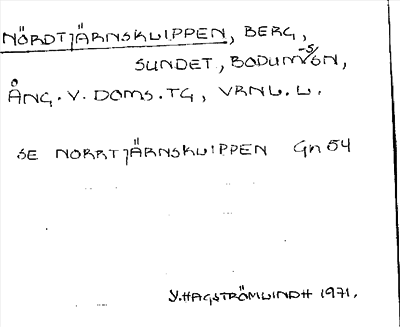 NÖRDTJÄRNSKLIPPEN, BERG,
SUNDET, BODUMS SN,
ÅNG. V. DOMS. TG, VRNL. L.
SE NORRTJÄRNSKLIPPEN Gn 54
Y. HAGSTRÖMLINDH 1971.